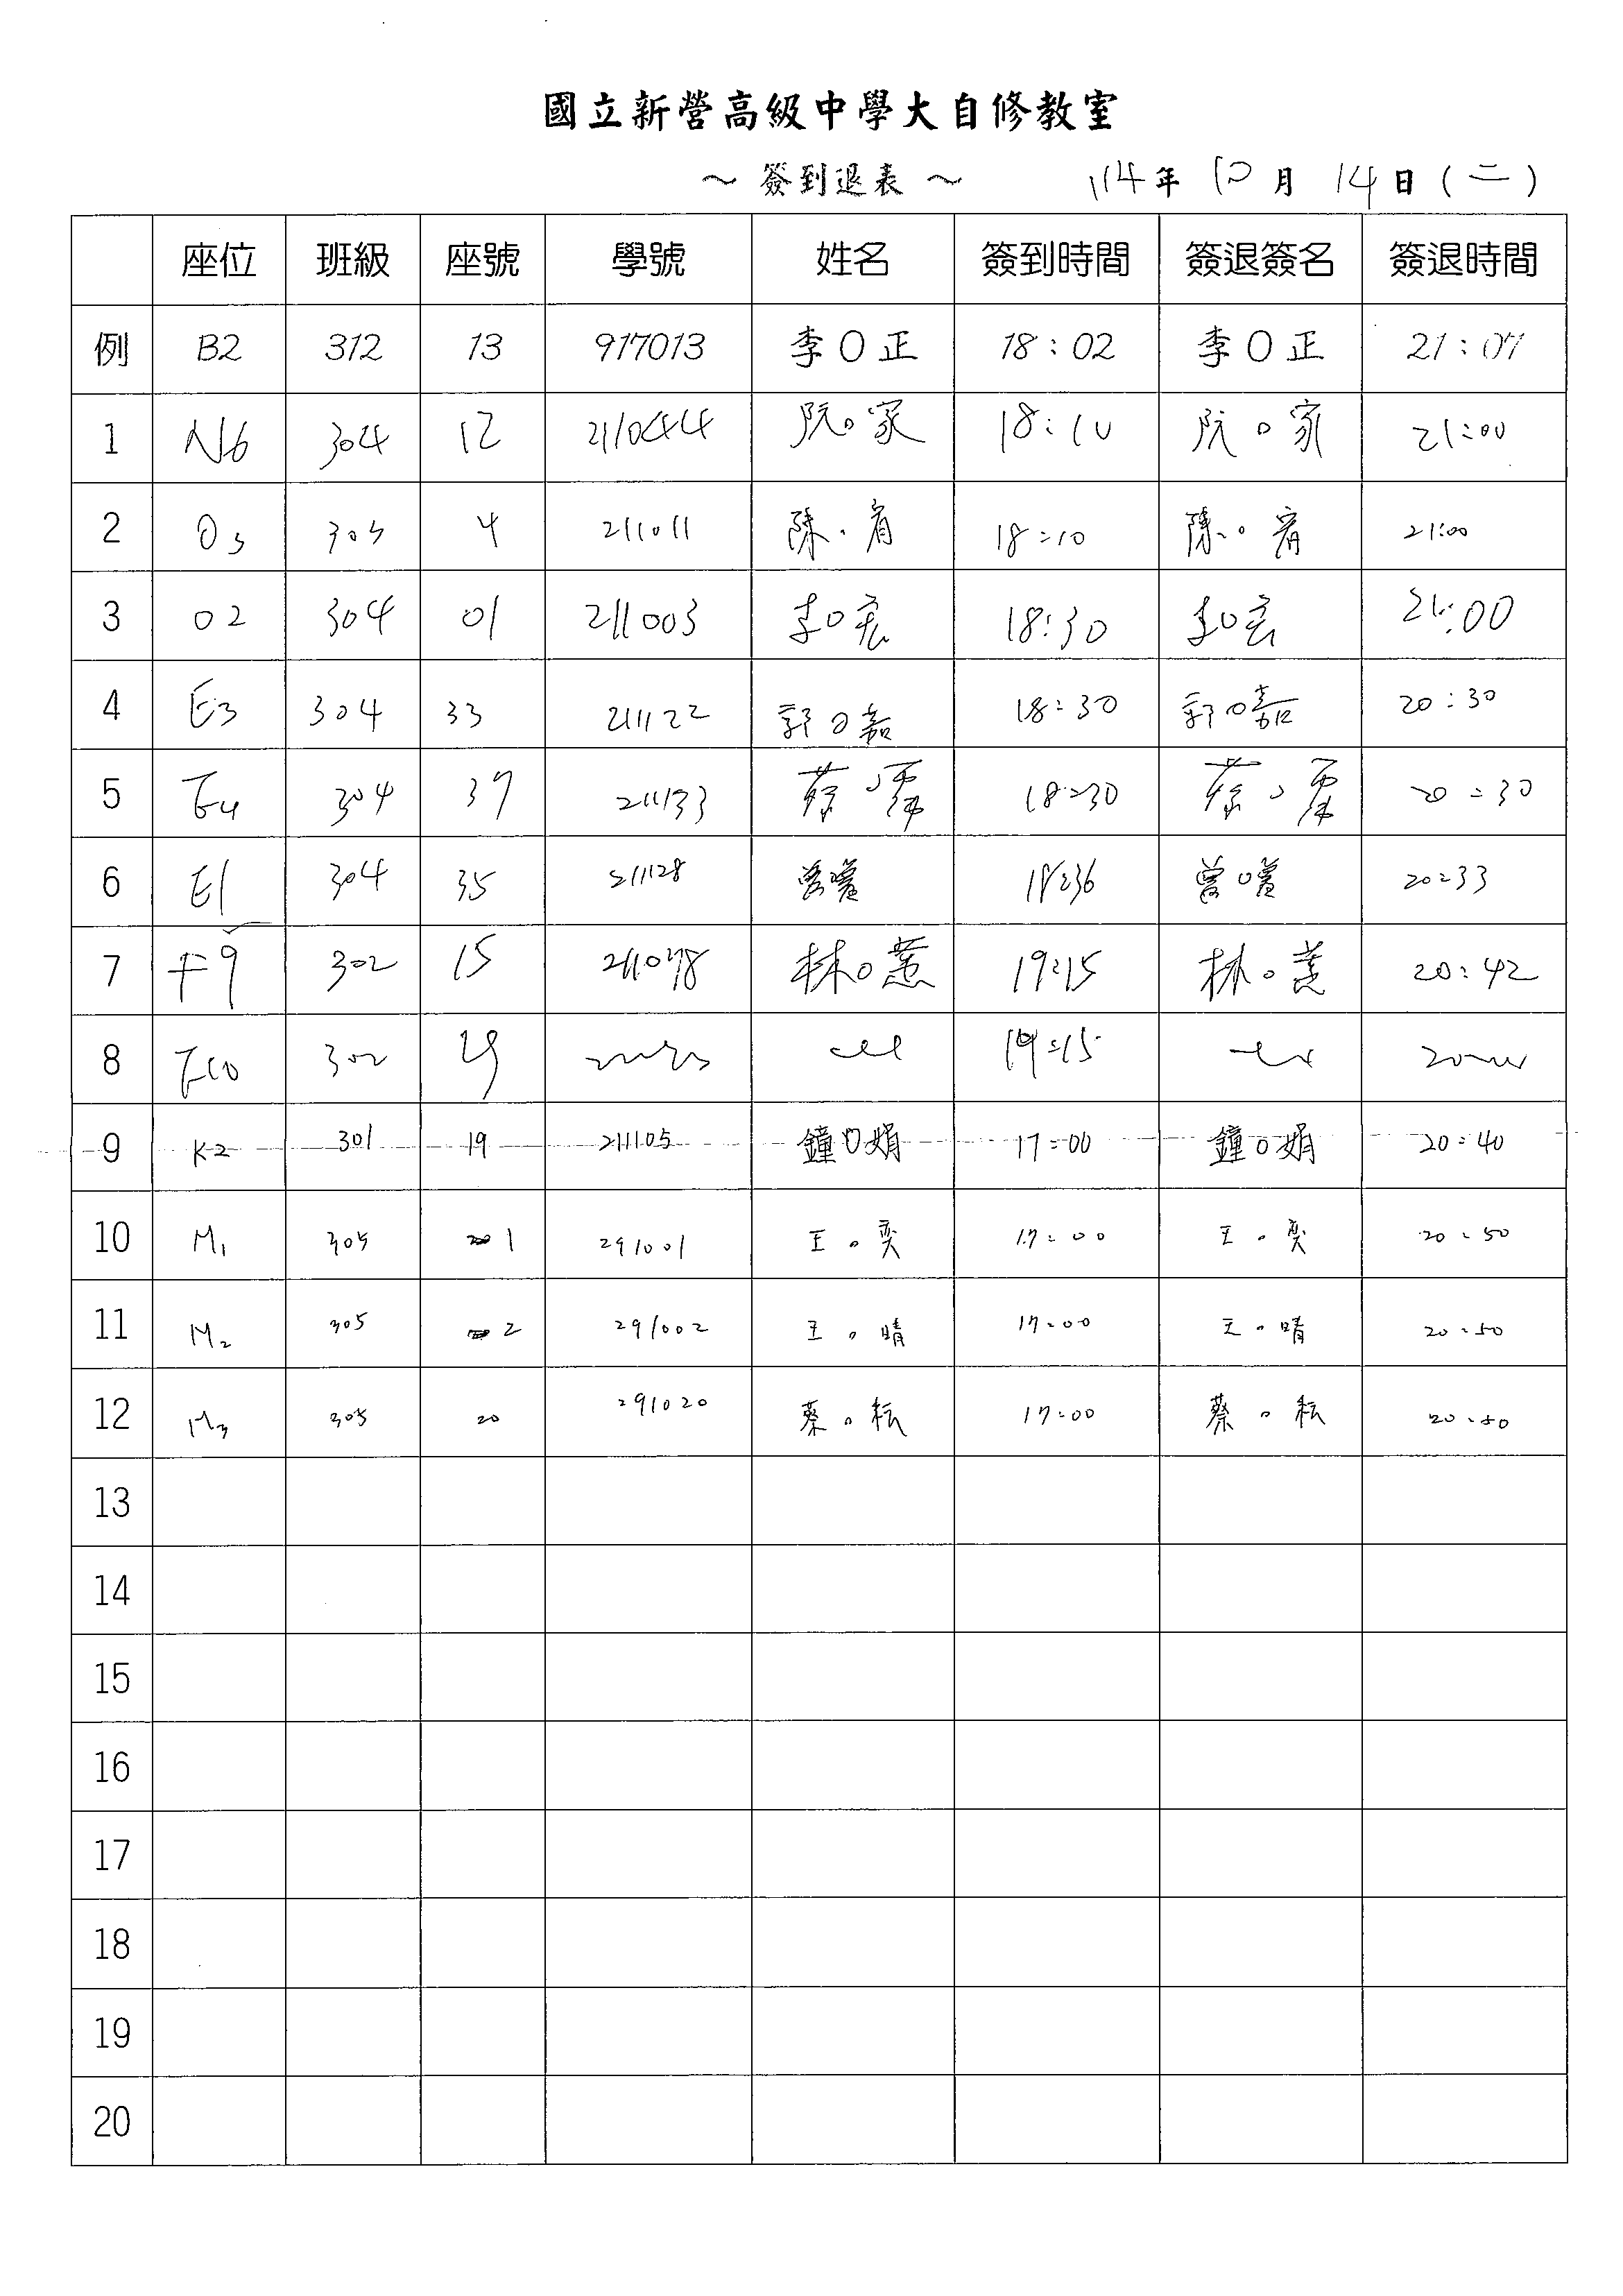 國立新營高級中學大自修教室
～ 簽到退表 ～ 114年 10月 14日(二)
座位 班級 座號 學號 姓名 簽到時間 簽退簽名 簽退時間
例 B2 312 13 917013 李O正 18:02 李O正 21:07
1 N6 304 12 211044 阮o家 18:10 阮o家 21:00
2 O3 305 4 211011 陳.宥 18:10 陳o宥 21:00
3 O2 304 01 211003 李O宏 18:30 李O宏 21:00
4 E3 304 33 211122 郭O嘉 18:30 郭O嘉 20:30
5 E4 304 37 211133 蔡 18:30 蔡 20:30
6 E1 304 35 211128 曾 18:36 曾 20:33
7 F9 302 15 211078 林O蕙 19:15 林O蕙 20:42
8 F10 302 19:15
9 K2 301 19 211105 鐘O娟 17:00 鐘O娟 20:40
10 M1 305 1 291001 王o奕 17:00 王o奕 20:50
11 M2 305 2 291002 王o晴 17:00 王o晴 20:50
12 M3 305 20 291020 蔡o耘 17:00 蔡o耘 20:50
13
14
15
16
17
18
19
20